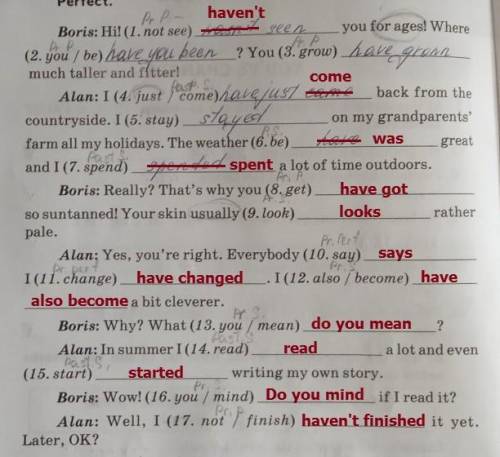 Perfect.
Pr P
haven't
Boris: Hi! (1. not see) seen you for ages! Where
Pr. P.
(2. you / be) have you been ? You (3. grow) have grown
much taller and fitter!
past S. come
Alan: I (4. just / come) have just came back from the
countryside. I (5. stay) stayed on my grandparents'
P.S.
farm all my holidays. The weather (6. be) have was great
past S.
and I (7. spend) spended spent a lot of time outdoors.
Pr. P.
Boris: Really? That's why you (8. get) have got
Pr. S.
so suntanned! Your skin usually (9. look) looks rather
pale.
Pr. Perf
Alan: Yes, you're right. Everybody (10. say) says
Pr. perf
I (11. change) have changed . I (12. also / become) have
also become a bit cleverer.
Pr S.
Boris: Why? What (13. you / mean) do you mean ?
Past S.
Alan: In summer I (14. read) read a lot and even
Past S.
(15. start) started writing my own story.
Pr. S.
Boris: Wow! (16. you / mind) Do you mind if I read it?
Pr. P.
Alan: Well, I (17. not / finish) haven't finished it yet.
Later, OK?